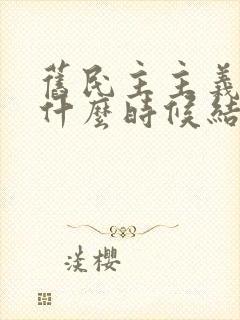 舊民主主義
什麼時候結
淡櫻